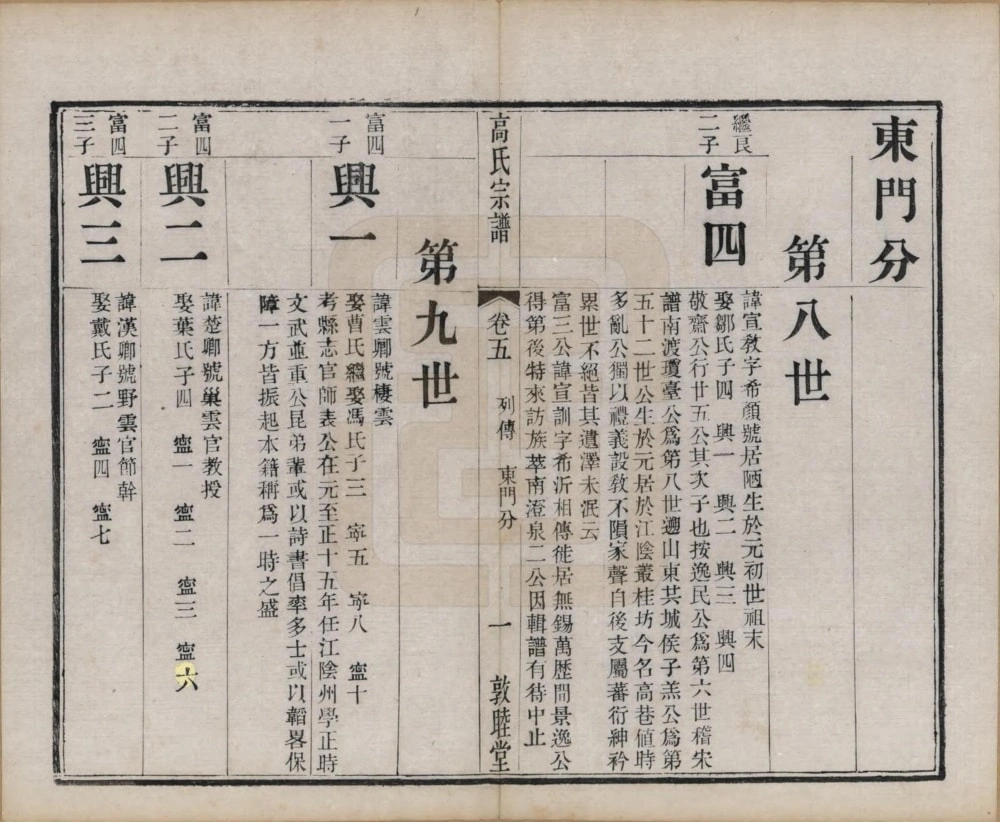 東門分
第八世
繼良二子
富四
諱宣敎字希顏號居陋生於元初世祖末
娶鄒氏子四 興一 興二 興三 興四
敬齋公行廿五公其次子也按逸民公爲第六世稽宋
譜南渡瓊臺公爲第八世遡山東共城侯子羔公爲第
五十二世公生於元居於江陰叢桂坊今名高巷値時
多亂公獨以禮義設敎不隕家聲自後支屬蕃衍紳衿
累世不絕皆其遺澤未泯云
富三公諱宣訓字希沂相傳徙居無錫萬歷閒景逸公
得第後特來訪族萃南澄泉二公因輯譜有待中止
高氏宗譜
卷五 列傳 東門分 一 敦睦堂
第九世
富四一子
興一
諱雲卿號棲雲
娶曹氏繼娶馮氏子三 寍五 寍八 寍十
考縣志官師表公在元至正十五年任江陰州學正時
文武並重公昆弟輩或以詩書倡率多士或以韜畧保
障一方皆振起本籍稱爲一時之盛
富四二子
興二
諱楚卿號巢雲官教授
娶葉氏子四 寍一 寍二 寍三 寍六
富四三子
興三
諱漢卿號野雲官節幹
娶戴氏子二 寍四 寍七